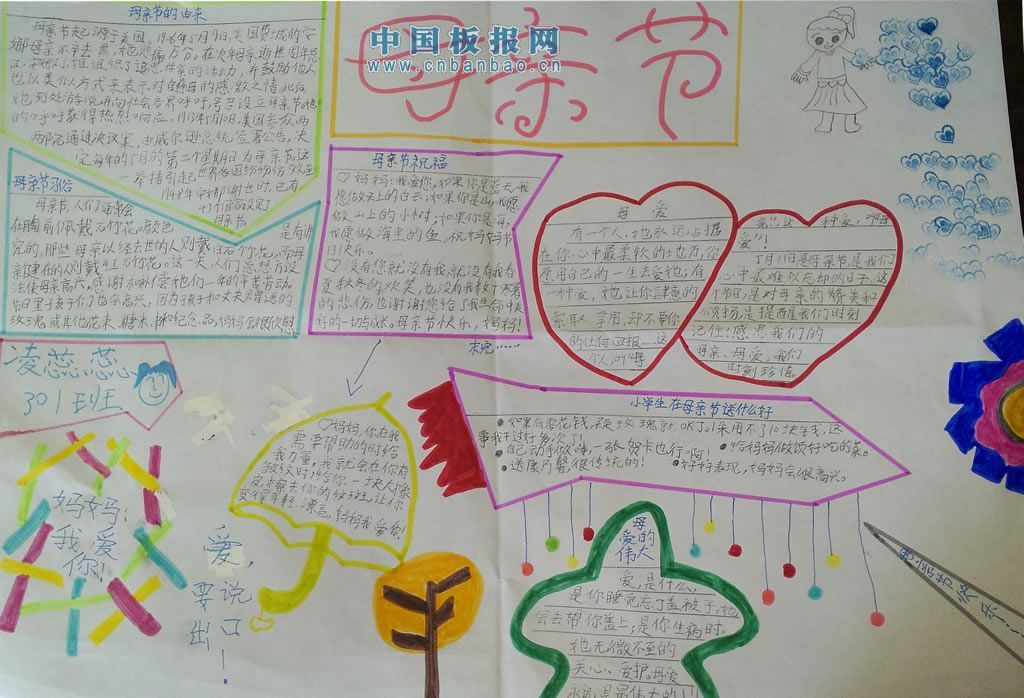 母亲节
中国板报网
www.cnbanbao.cn
母亲节的由来
母亲节起源于美国。1906年5月9日美国费城的安
娜母亲不幸去世,她悲痛万分。在次年母亲逝世周年忌
日,安娜小姐组织了追思母亲的活动,并鼓励他人
也以类似方式来表示对自慈母的感激之情。此后
她到处游说并向社会各界呼吁,号召设立母亲节。她
的呼吁获得热烈响应。1913年5月10日,美国参众两
两院通过决议案,由威尔逊总统签署公告,决
定每年的5月的第二个星期日为母亲节。这
一举措引起世界各国纷纷仿效,至
1948年安娜谢世时,已有
43个国家设定了
母亲节
母亲节习俗
母亲节,人们通常会
在胸前佩戴石竹花。颜色 是有讲
究的。那些母亲以经去世的人则戴白石竹花,而母
亲健在的人则戴红石竹花。这一天,人们总想方设
法使母亲高兴,感谢和补尝她们一年的辛苦劳动。
母日里孩子们也会高兴,因为孩子和丈夫赠送的
玫瑰或其他花束、糖米、
母亲节祝福
♡妈妈:我爱您,如果你是蓝天,我
愿做天上的白云;如果你是山,我愿
做山上的小树;如果你是海,
我愿做海里的鱼。祝妈妈节
日快乐。
♡没有您就没有我,就没有我春
夏秋冬的欢笑,也没有我数个寒暑
的悲伤,也谢谢您给了我生命中美
好的一切与成长。母亲节快乐,妈妈!
未完……
母爱
有一个人,她永远占据
在你心中最柔软的地方,你
愿用自己的一生去爱她;有
一种爱,她让你肆意的
索取、享用,却不要你
的任何回报……这
个人,叫“母
亲”,这一种爱,叫“母
爱”!
5月11日是母亲节,是我们
心中最难以忘却的日子。这
个节,是对母亲的赞美和
颂扬,是提醒我们时刻
记住:感恩我们的
母亲、母爱。我们
时刻珍惜。
凌蕊蕊
301班
♡妈妈,你在我
需要帮助的时给
我力量,我就会在你有
皱纹时给你一块大橡
皮,擦去你的皱斑,让你
变得年轻、漂亮。妈妈我爱你!
小学生在母亲节送什么好
●如果有零花钱,买玫瑰就OK了。(采用不了10块钱,这
事我干过好多次了)
●自己动手做嘛,一张贺卡也行啊! ●给妈妈做顿好吃的菜。
●送康乃馨,很传统的! ●好好表现,妈妈会很高兴。
妈妈:
我爱
你!
爱,
要说
出口
!
母
爱的
伟大
爱,是什么,
是你睡觉忘了盖被子,她
会去帮你盖上;是你生病时,
她无微不至的
关心、爱护。母爱
永远是最伟大的!!
母亲节快乐……